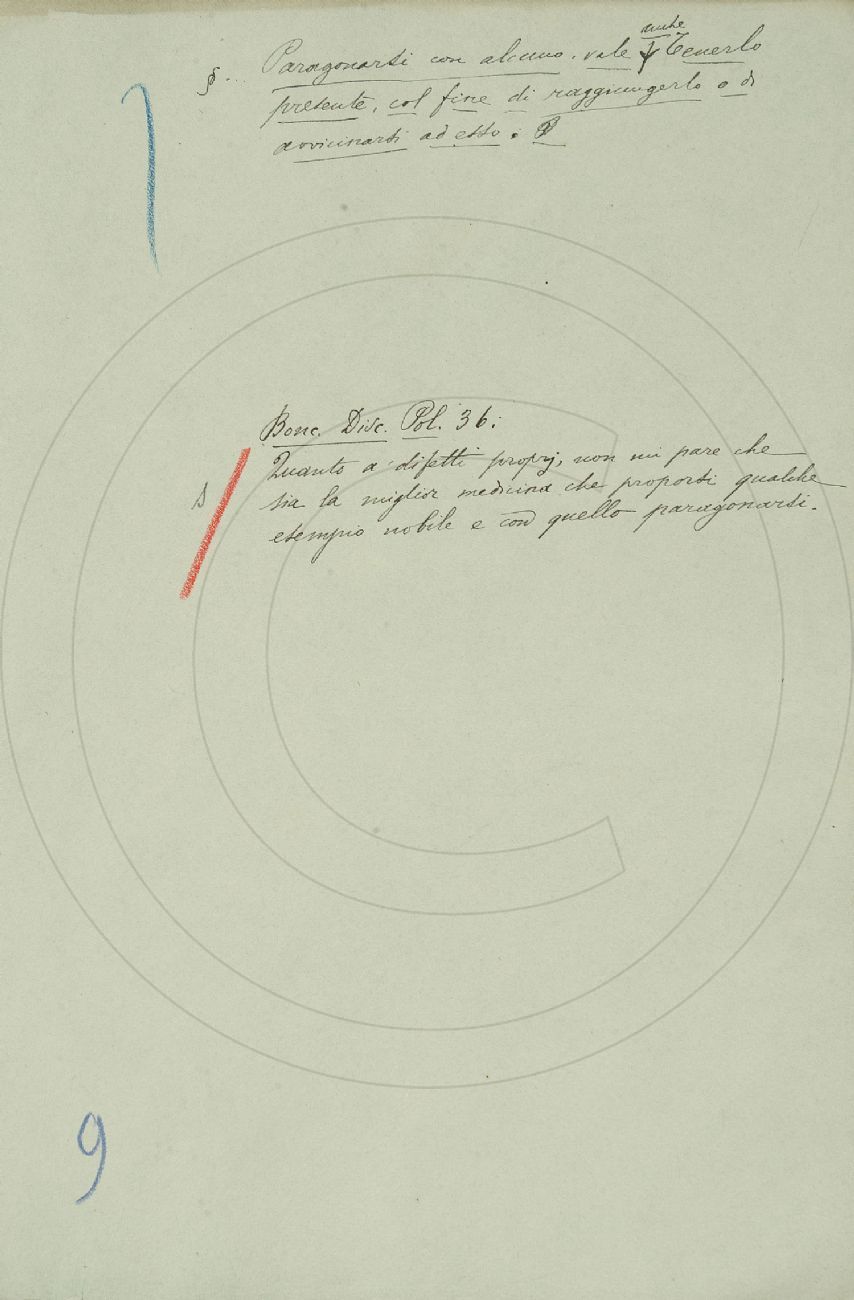 §... Paragonarsi con alcuno, vale anche Tenerlo
presente, col fine di raggiungerlo o di
avvicinarsi ad esso:
Bonc. Disc. Pol. 36:
Quanto a' difetti proprj, non mi pare che
sia la miglior medicina che proporsi qualche
esempio nobile e con quello paragonarsi.
9